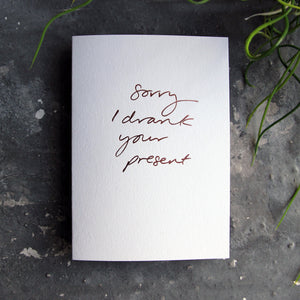 Sorry
I drank
your
present